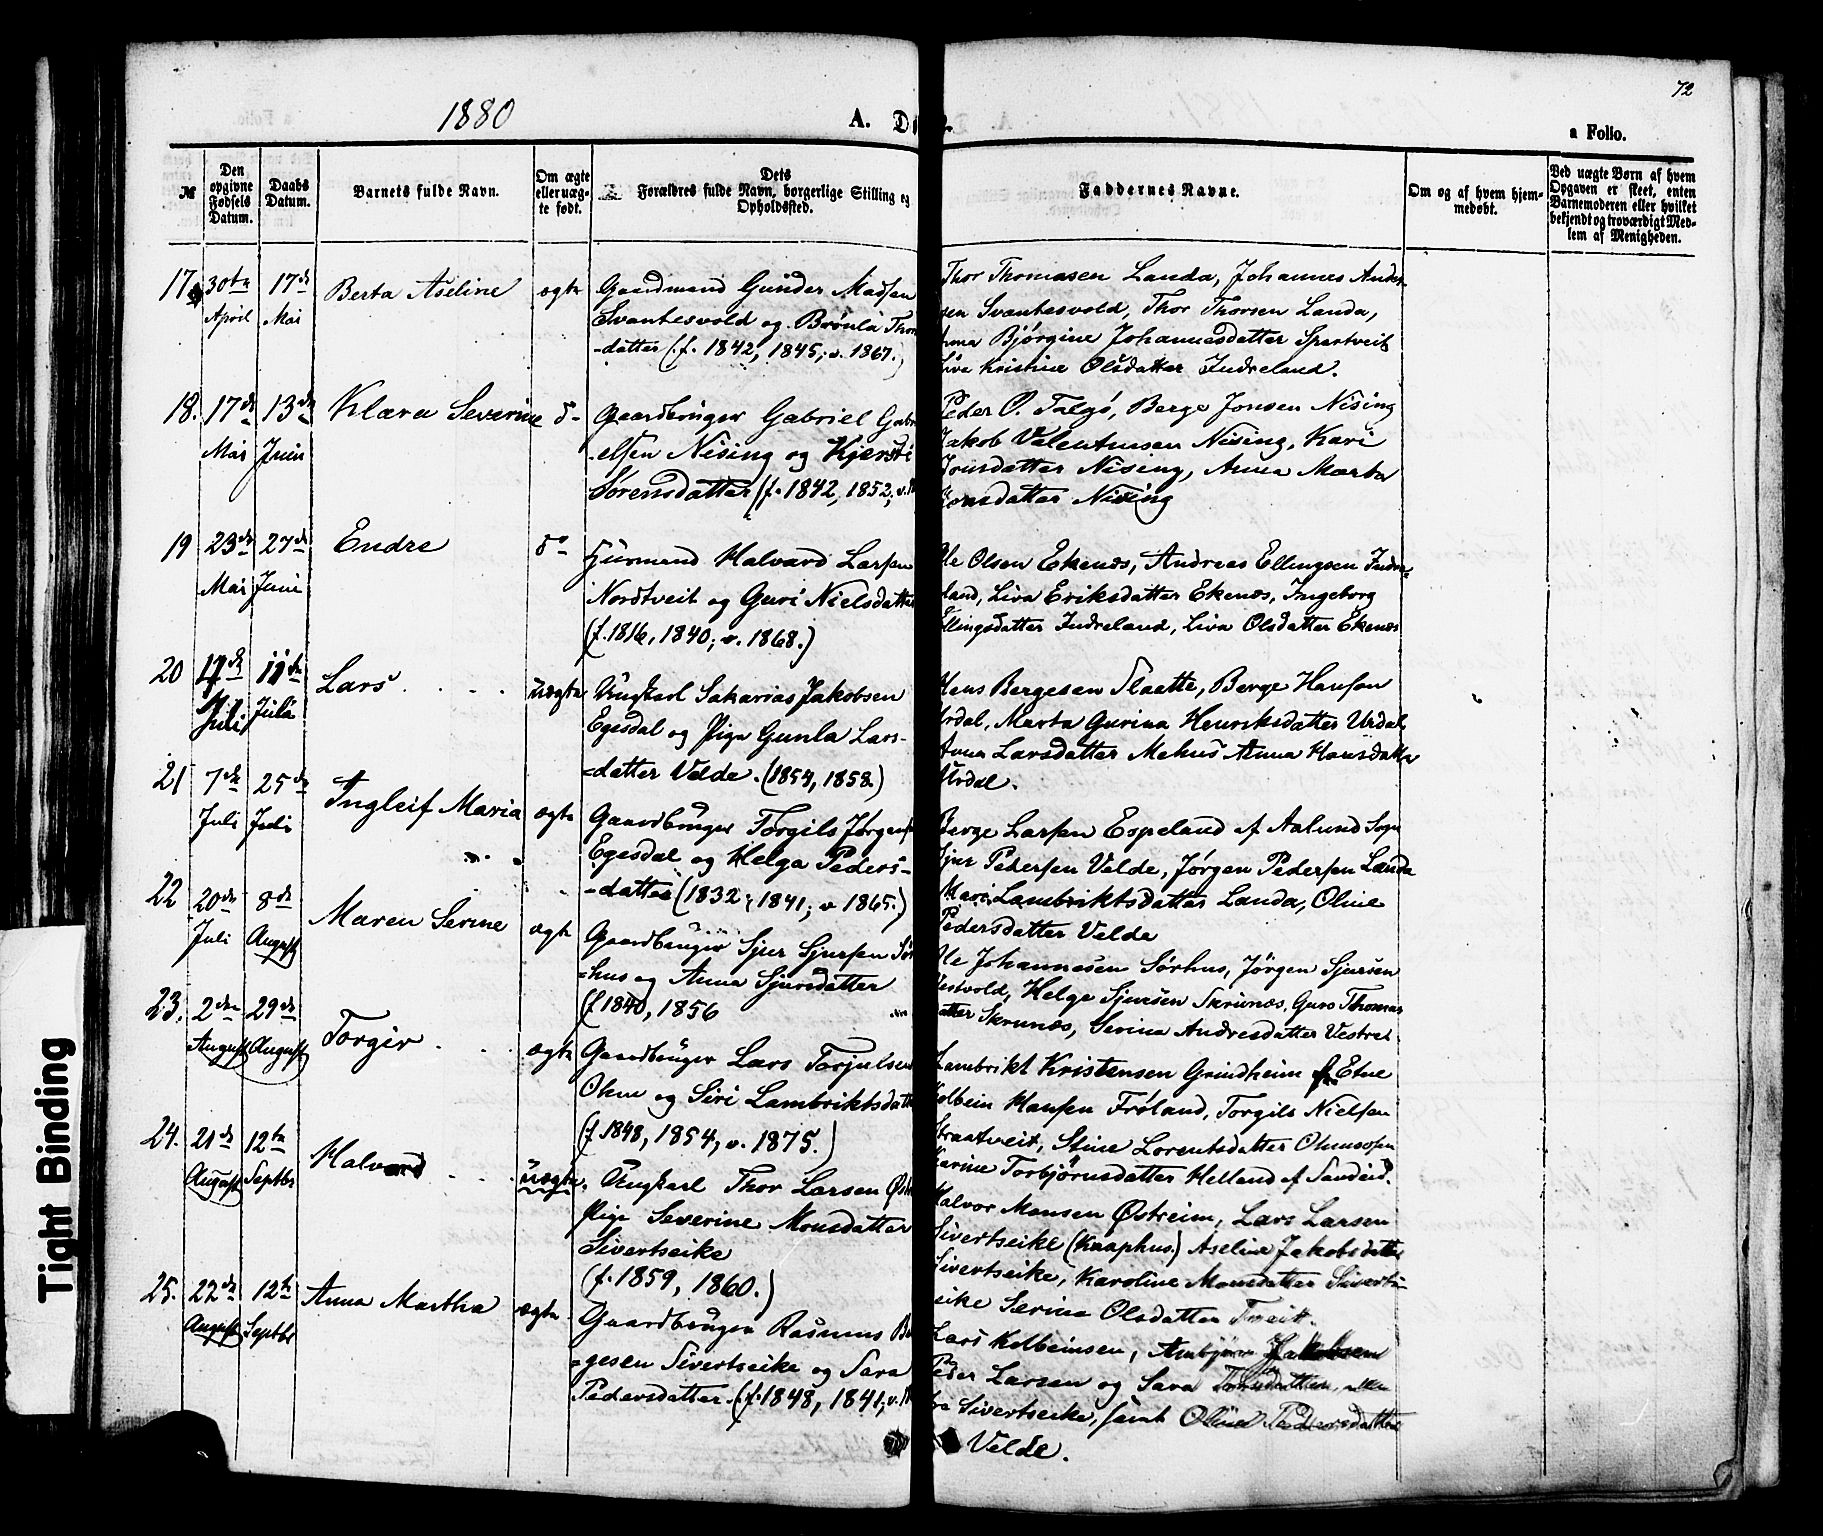 72
1880
A. Dø
a Folio.
№
Den opgivne Fødsels Datum.
Daabs Datum.
Barnets fulde Navn.
Om ægte eller uægte født.
Dets Forældres fulde Navn, borgerlige Stilling og Opholdssted.
Faddernes Navne.
Om og af hvem hjemmedøbt.
Ved uægte Børn af hvem Opgaven er skeet, enten Barnemoderen eller hvilket bekjendt og troværdigt Medlem af Menigheden.
17 30te April 17de Mai Berta Aseline ægte
Gaardmand Gunder Madsen
Svantesvold og Brønla Thors
-datter (f. 1842, 1845, v. 1867.)
Thor Thomasen Landa, Johannes Andr-
sen Svantesvold, Thor Thorsen Landa,
Anna Bjørgine Johannesdatter Spertveit
Liva Kristine Olsdatter Indreland.
18. 17de Mai 13de Juni Klara Severine do
Gaardbruger Gabriel Gabri
-elsen Nising og Kjersti
Sørensdatter (f. 1842, 1852, v.
Peder O. Talgø, Berge Jonsen Nising
Jakob Valentinsen Nising, Kari
Jonsdatter Nising, Anna Marta
Jonsdatter Nising
19 23de Mai 27de Juni Endre do
Huusmand Halvard Larsen
Nordtveit og Guri Nielsdatter
(f. 1816, 1840, v. 1868.)
Ole Olsen Ekenes, Andreas Ellingsen Indre-
land, Liva Eriksdatter Ekenes, Ingeborg
Ellingsdatter Indreland, Liva Olsdatter Ekenes
20 Juli 11te Juli Lars uægte
Ungkarl Sakarias Jakobsen
Egesdal og Pige Gunla Lars-
-datter Velde. (1854, 1858)
Hans Bergesen Slaatte, Berge Hansen
Urdal, Marta Gurina Henriksdatter Urdal
Anna Larsdatter Mehus Anna Hansdatter
Urdal.
21 7de Juli 25de Juli Ingleif Maria ægte
Gaardbruger Torgils Jørgens
Egesdal og Helga Peders-
-datter (1832, 1841, v 1865.)
Berge Larsen Espeland af Aalund Sogn
Sjur Pedersen Velde, Jørgen Pedersen Landa
Mari Lambriktsdatter Landa, Oline
Pedersdatter Velde
22 20de Juli 8de August Maren Serine ægte
Gaardbruger Sjur Sjursen Sør
-hus og Anna Sjursdatter
(f. 1840, 1856
Ole Johannesen Sørhus, Jørgen Sjursen
Vestvold, Helge Sjursen Skrunes, Guro Thomas
datter Skrunes, Serina Andresdatter Vestre
23. 2den August 29de August Torgir ægte
Gaardbruger Lars Torjulsen
Olme og Siri Lambriktsdatter
(f. 1848, 1854, v. 1875.)
Lambrikt Kristensen Grindheim af Etne
Kolbein Hansen Frøland, Torgils Nielsen
Straatveit, Stine Lorentsdatter Olmeosen
Karine Torbjørnsdatter Helland af Sandeid.
24. 21de August 12te Septbr Halvard uægte.
Ungkarl Thor Larsen Østr
Pige Severine Monsdatter
Sivertseike
(f. 1859, 1860.)
Halvor Monsen Østreim, Lars Larsen
Sivertseike (Knaphus) Aseline Jakobsdatter
Sivertseike, Karoline Monsdatter Siverts-
eike Serina Olsdatter Tveit.
25. 22de August 12te Septbr Anna Martha ægte
Gaardbruger Rasmus Bør
-gesen Sivertseike og Sara
Pedersdatter (f. 1848, 1841, v.
Lars Kolbeinsen, Anbjørn Jakobsen
Peder Larsen og Sara
fra Sivertseike, samt Oline Pedersdatter
Velde.
Tight Binding